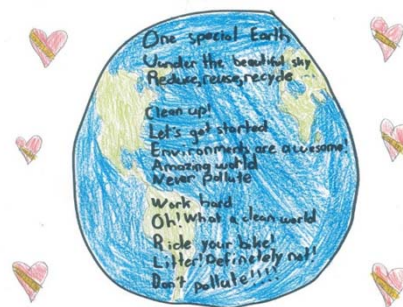 One special Earth
Uunder the beautiful sky
Reduse, reuse, recycle ...
Clean up!
Let's get started
Environments are awesome!
Amazing world
Never pollute
Work hard
Oh! What a clean world
Ride your bike!
Litter! Definetely not!
Don't pollute!!!!